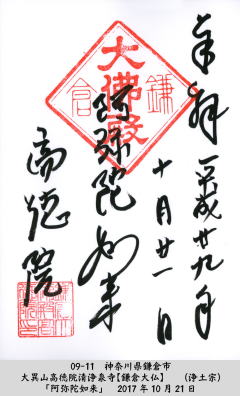 奉拝
平成廿九年
十月廿一日
大佛殿
鎌倉
阿弥陀如来
高徳院
09-11 神奈川県鎌倉市
大異山高徳院清浄泉寺【鎌倉大仏】 (浄土宗)
「阿弥陀如来」 2017年10月21日